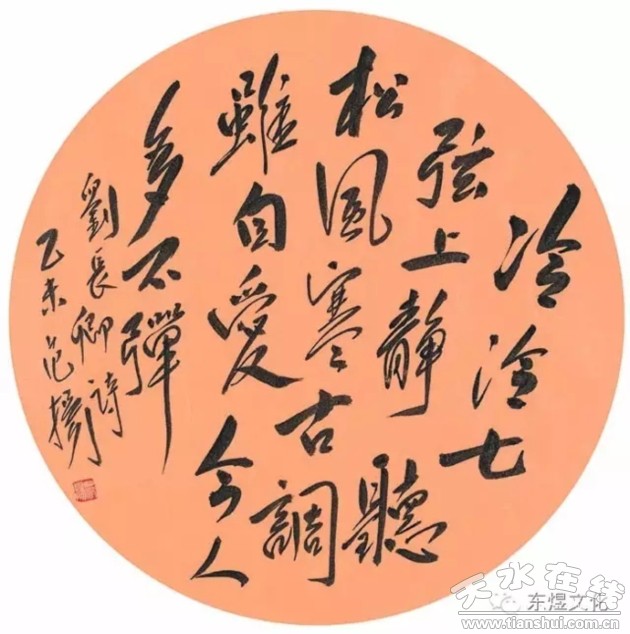 泠泠七
弦上靜聽
松風寒古調
雖自愛今人
多不彈
劉長卿詩
乙未范
天水在线
东煜文化
www.tianshui.com.cn